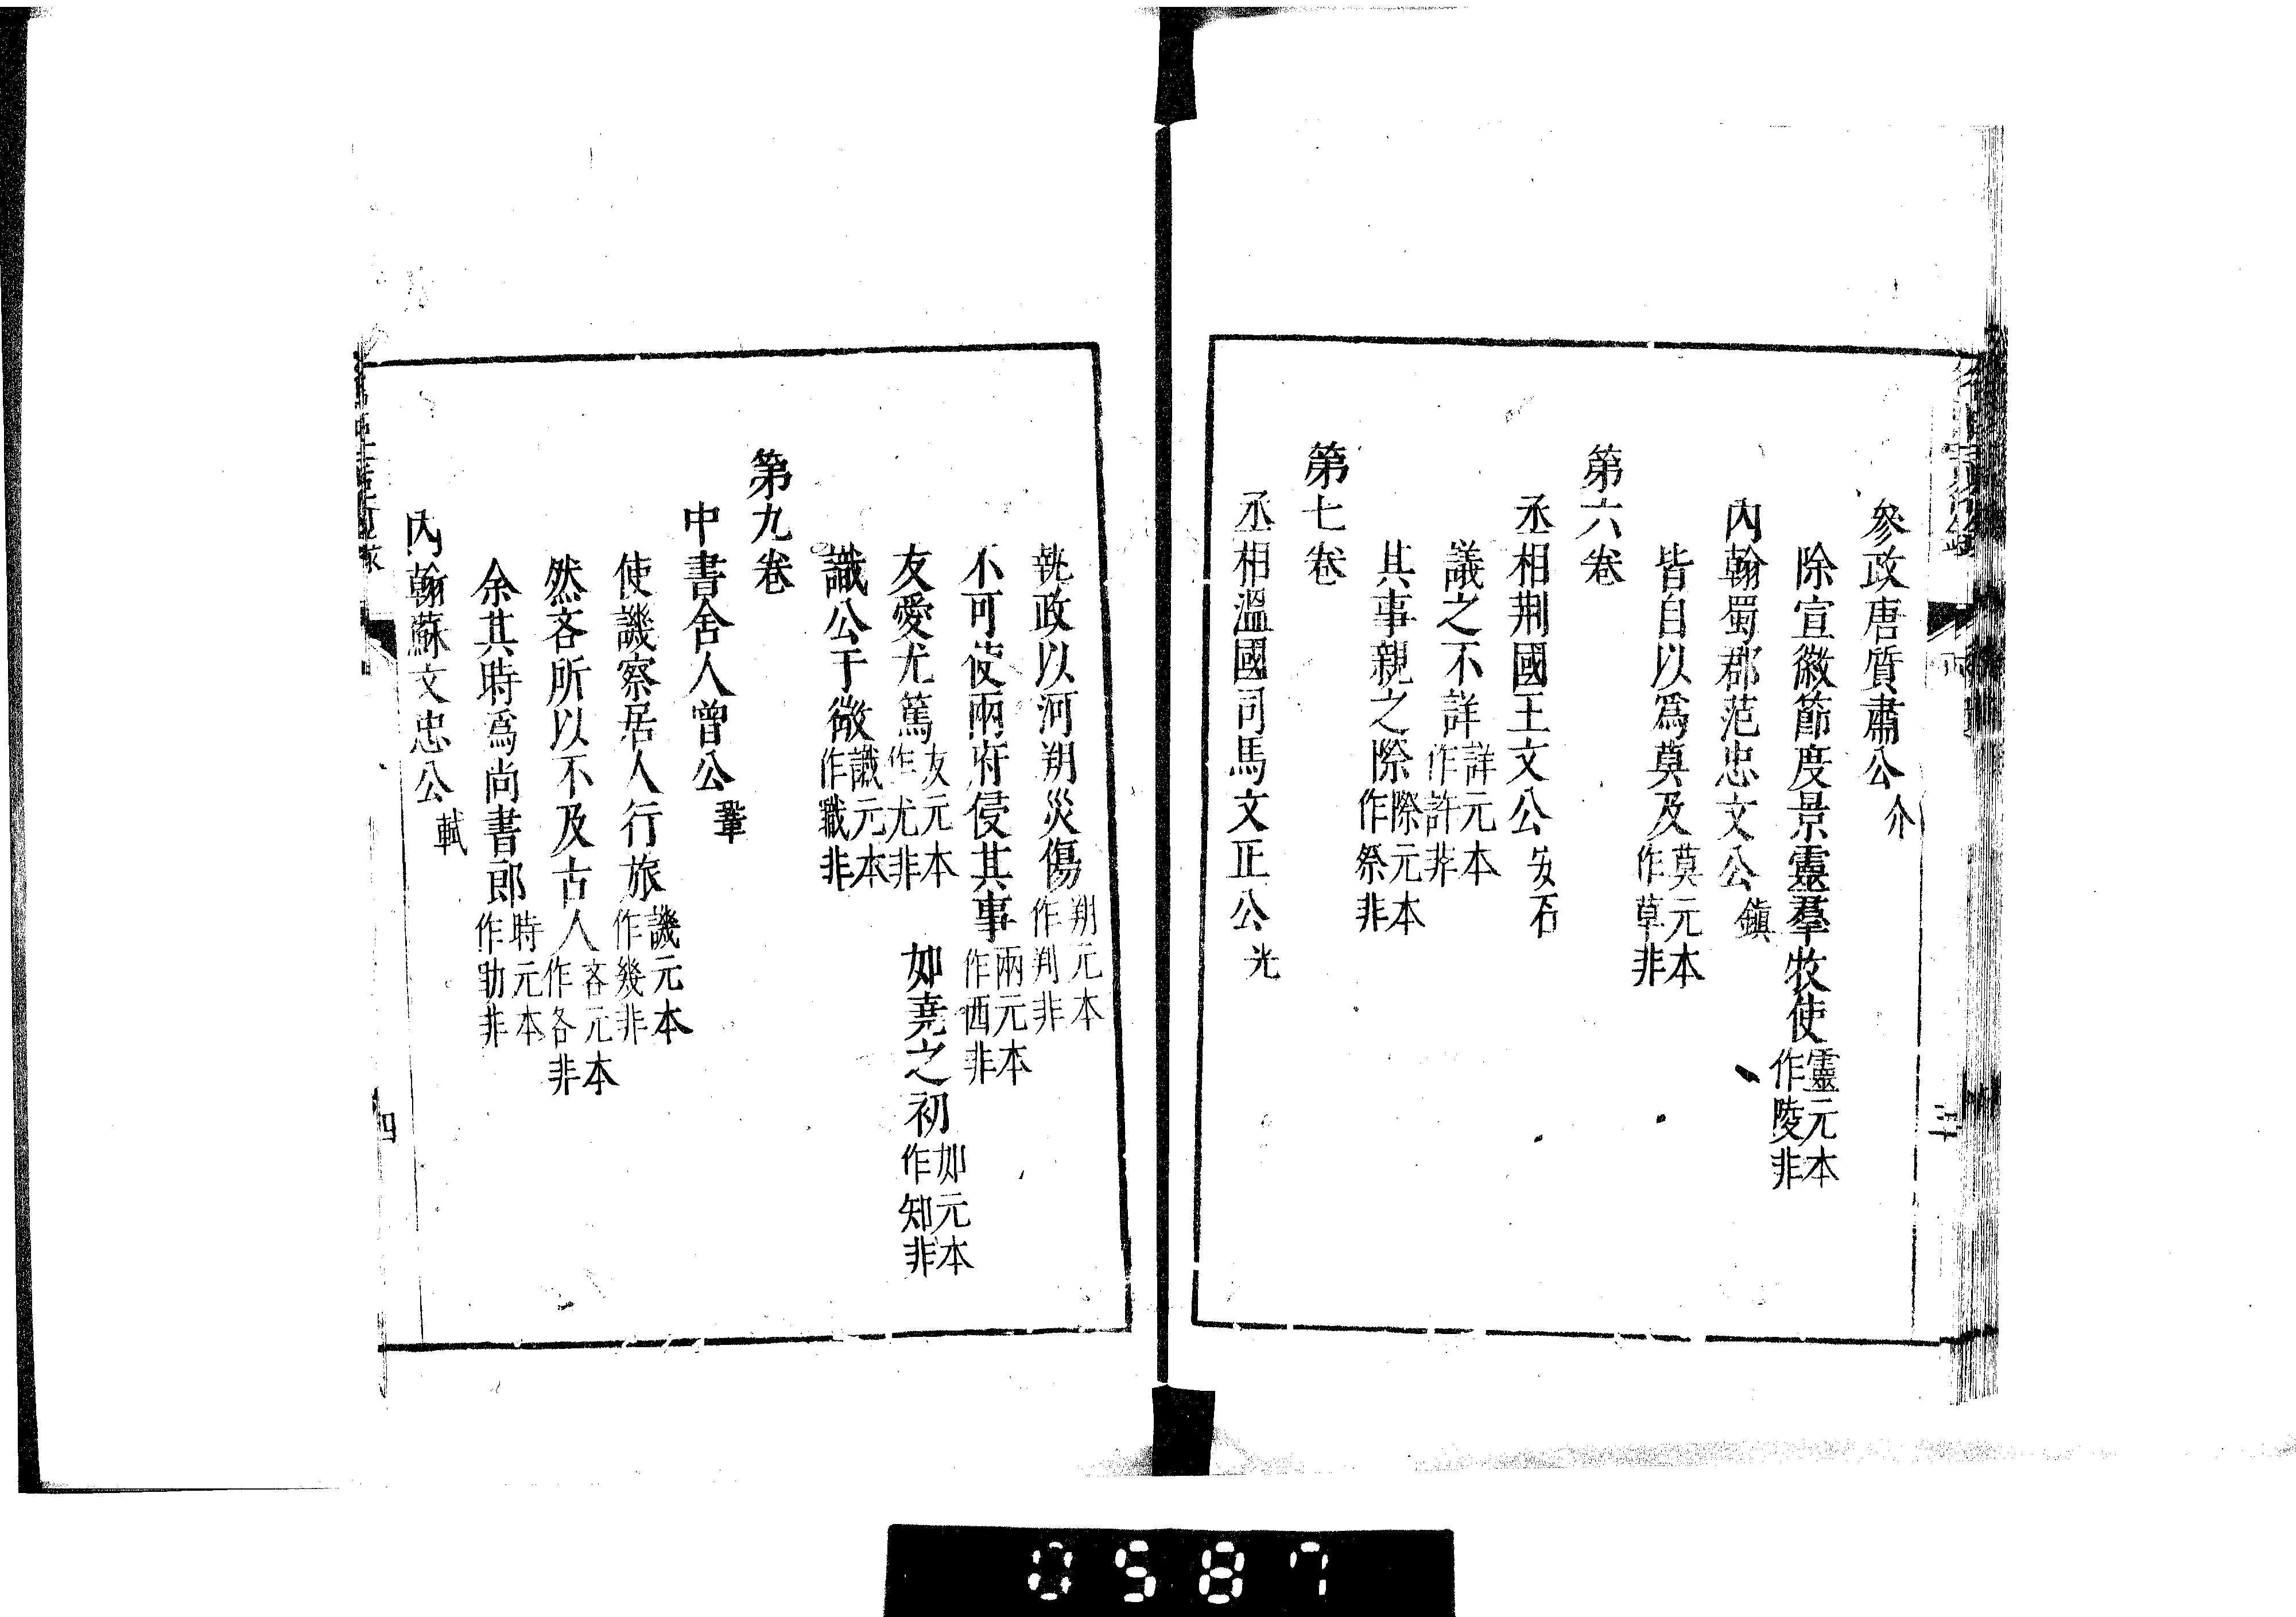 參政唐質肅公介
除宣徽節度景靈羣牧使靈元本作陵非
內翰蜀郡范忠文公鎮
皆自以爲莫及莫元本作草非
第六卷
丞相荆國王文公安石
議之不詳詳元本作許非
其事親之際際元本作祭非
第七卷
丞相溫國司馬文正公光
三
執政以河朔災傷朔元本作判非
不可使兩府侵其事兩元本作酉非
友愛尤篤友元本作尤非 如堯之初如元本作知非
識公于微識元本作職非
第九卷
中書舍人曾公鞏
使譏察居人行旅譏元本作幾非
然吝所以不及古人吝元本作各非
余其時爲尚書郎時元本作助非
內翰蘇文忠公軾
四
0587